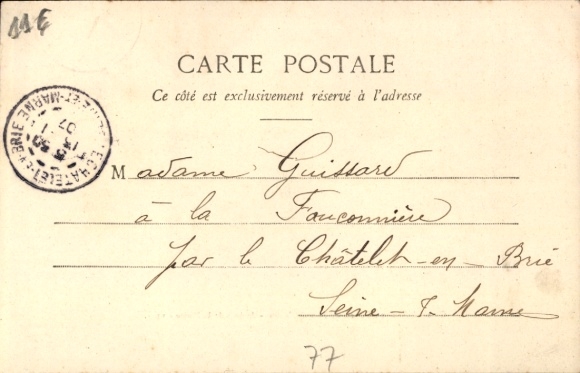 11€
CARTE POSTALE
Ce côté est exclusivement réservé à l'adresse
LE CHATELET-EN-BRIE SEINE-ET-MARNE
Madame Guissard
à la Fauconnière
par le Châtelet-en-Brie
Seine-&-Marne
77